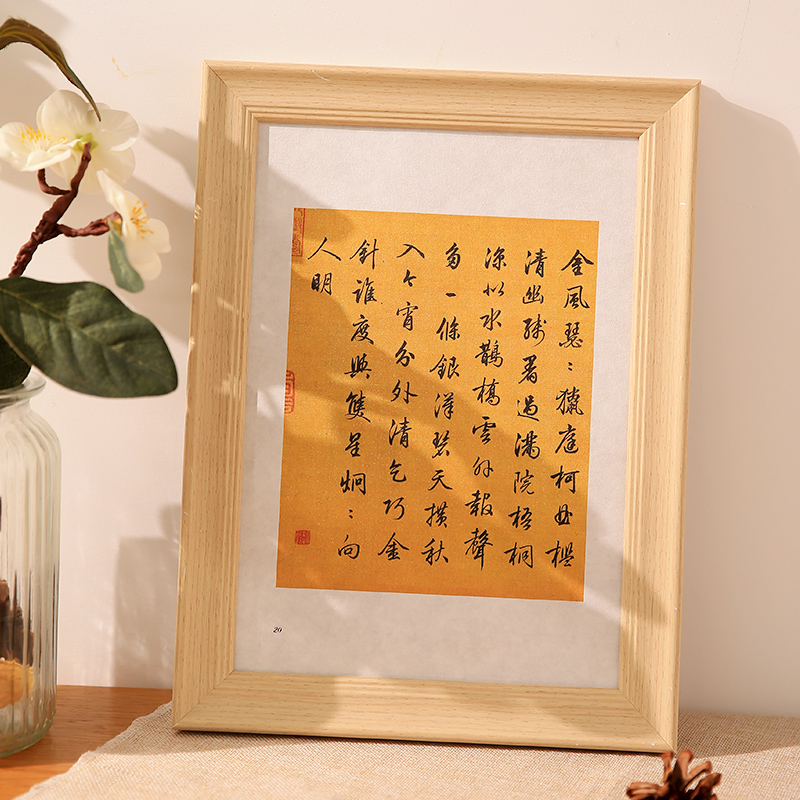 金風瑟〻獵庭柯曲檻
清幽殘暑過滿院梧桐
涼似水鵲橋雲外報聲
多一條銀漢碧天橫秋
入今宵分外清乞巧金
針誰度與雙星炯〻向
人明
20